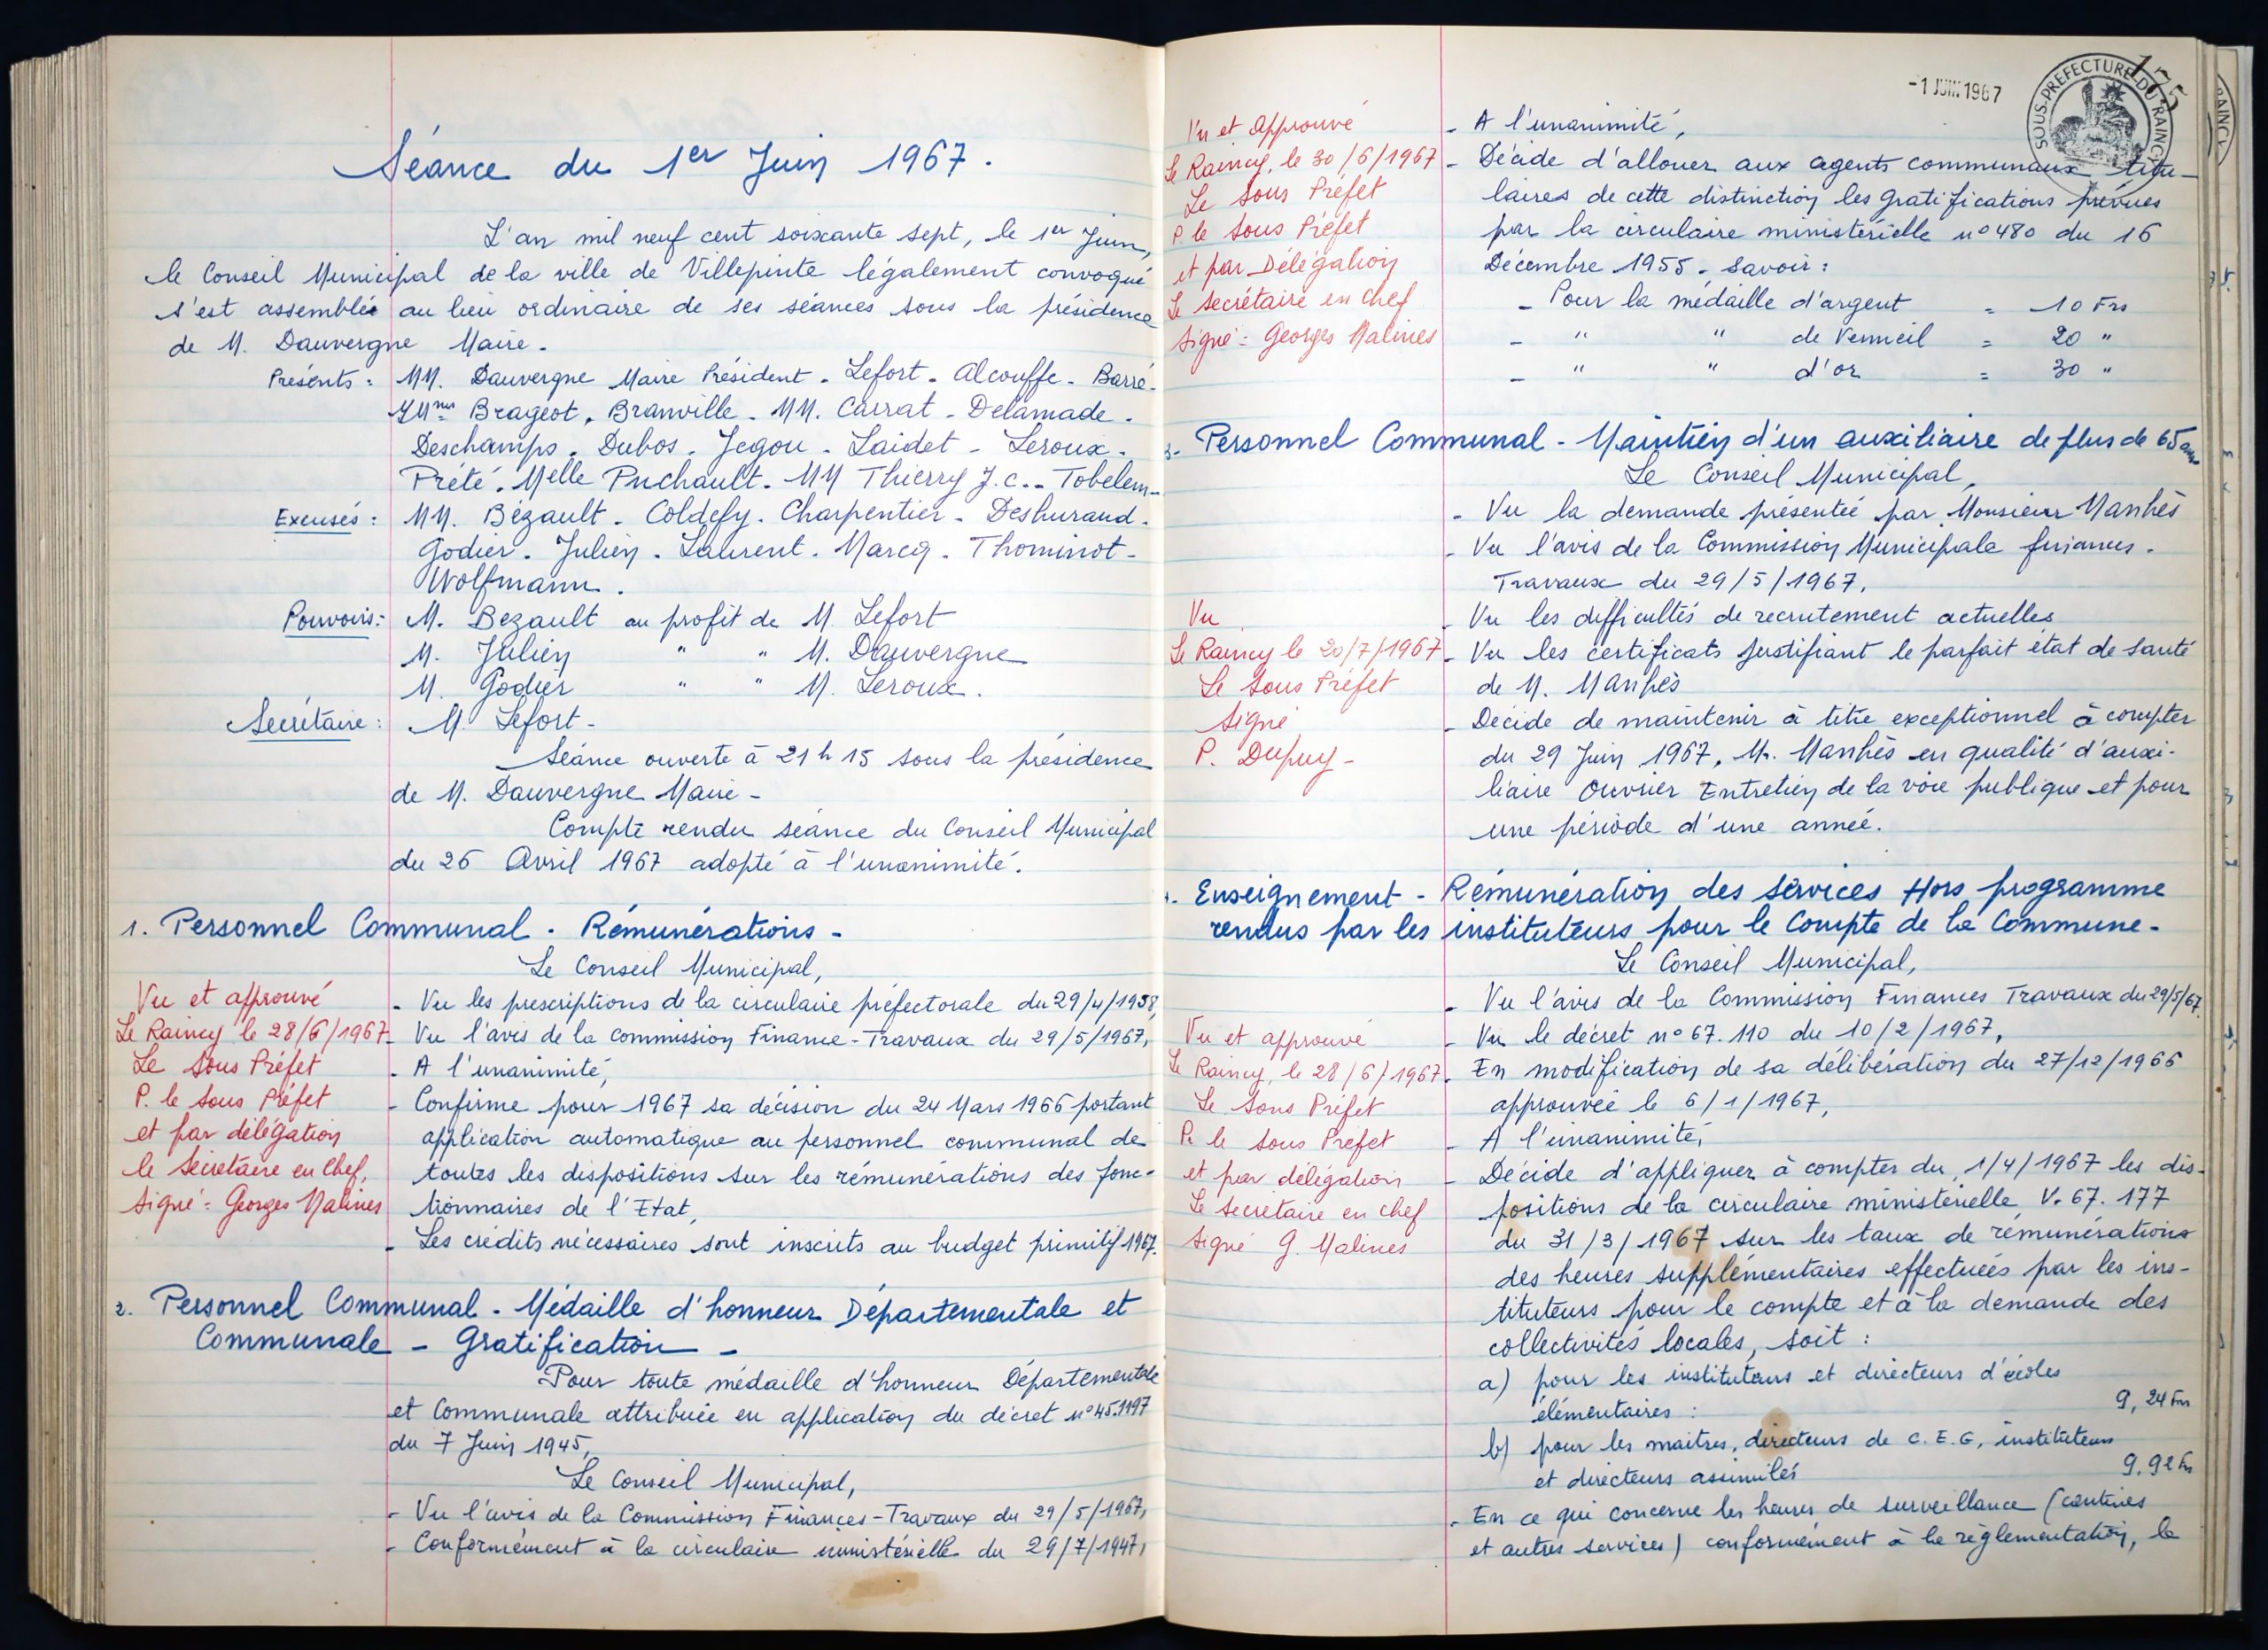 Séance du 1er Juin 1967.
L'an mil neuf cent soixante sept, le 1er Juin,
le Conseil Municipal de la ville de Villepinte légalement convoqué
s'est assemblée au lieu ordinaire de ses séances sous la présidence
de M. Dauvergne Maire.
Présents : MM. Dauvergne Maire Président. Lefort. Alcouffe. Barré.
Mmes Brageot. Branville. MM. Carrat. Delamade.
Deschamps. Dubos. Jegou. Laidet. Leroux.
Prété. Melle Puchault. MM Thierry J.C.. Tobelem.
Excusés : MM. Bézault. Coldefy. Charpentier. Deshuraud.
Godier. Julien. Laurent. Marcq. Thominot.
Wolfmann.
Pouvoirs : M. Bezault au profit de M. Lefort
M. Julien " " M. Dauvergne
M. Godier " " M. Leroux.
Secrétaire : M. Lefort.
Séance ouverte à 21 h 15 sous la présidence
de M. Dauvergne Maire -
Compte rendu séance du Conseil Municipal
du 26 Avril 1967 adopté à l'unanimité.
1. Personnel Communal - Rémunérations -
Le Conseil Municipal,
Vu et approuvé
Le Raincy le 28/6/1967
Le Sous Préfet
P. le Sous Préfet
et par délégation
le Secrétaire en Chef,
Signé : Georges Malines
- Vu les prescriptions de la circulaire préfectorale du 29/4/1958,
- Vu l'avis de la commission Finance-Travaux du 29/5/1967,
- A l'unanimité,
- Confirme pour 1967 sa décision du 24 Mars 1966 portant
application automatique au personnel communal de
toutes les dispositions sur les rémunérations des fonc-
tionnaires de l'Etat,
- Les crédits nécessaires sont inscrits au budget primitif 1967.
2. Personnel Communal - Médaille d'honneur Départementale et
Communale - Gratification -
Pour toute médaille d'honneur Départementale
et Communale attribuée en application du décret n°45.1197
du 7 Juin 1945,
Le Conseil Municipal,
- Vu l'avis de la Commission Finances-Travaux du 29/5/1967,
- Conformément à la circulaire ministérielle du 29/7/1947,
-1 JUIN 1967
SOUS-PREFECTURE DU RAINCY
175
Vu et Approuvé
Le Raincy, le 30/6/1967
Le Sous Préfet
P. le Sous Préfet
et par Délégation
Le Secrétaire en Chef
Signé : Georges Malines
- A l'unanimité,
- Décide d'allouer aux agents communaux titu-
laires de cette distinction les gratifications prévues
par la circulaire ministérielle n°480 du 16
Décembre 1955. Savoir :
- Pour la médaille d'argent = 10 Frs
- " " de Vermeil = 20 "
- " " d'or = 30 "
3. Personnel Communal - Maintien d'un auxiliaire de plus de 65 ans
Le Conseil Municipal,
- Vu la demande présentée par Monsieur Manhès
- Vu l'avis de la Commission Municipale finances.
Travaux du 29/5/1967,
- Vu les difficultés de recrutement actuelles
- Vu les certificats justifiant le parfait état de santé
de M. Manhès
- Décide de maintenir à titre exceptionnel à compter
du 29 Juin 1967, Mr. Manhès en qualité d'auxi-
liaire Ouvrier Entretien de la voie publique et pour
une période d'une année.
Vu
Le Raincy le 20/7/1967
Le Sous Préfet
Signé
P. Dupuy -
Enseignement - Rémunération des services Hors programme
rendus par les instituteurs pour le Compte de la Commune -
Le Conseil Municipal,
- Vu l'avis de la Commission Finances Travaux du 29/5/67.
- Vu le décret n°67.110 du 10/2/1967,
- En modification de sa délibération du 27/12/1966
approuvée le 6/1/1967,
- A l'unanimité,
- Décide d'appliquer à compter du 1/4/1967 les dis-
positions de la circulaire ministérielle V. 67. 177
du 31/3/1967 sur les taux de rémunérations
des heures supplémentaires effectuées par les ins-
tituteurs pour le compte et à la demande des
collectivités locales, soit :
a) pour les instituteurs et directeurs d'écoles
élémentaires : 9,24 Frs
b) pour les maitres, directeurs de C.E.G, instituteurs
et directeurs assimilés 9.92 Frs
- En ce qui concerne les heures de surveillance (cantines
et autres services) conformément à la règlementation, le
Vu et approuvé
Le Raincy, le 28/6/1967
Le Sous Préfet
P. le Sous Préfet
et par délégation
Le Secrétaire en Chef
Signé G. Malines